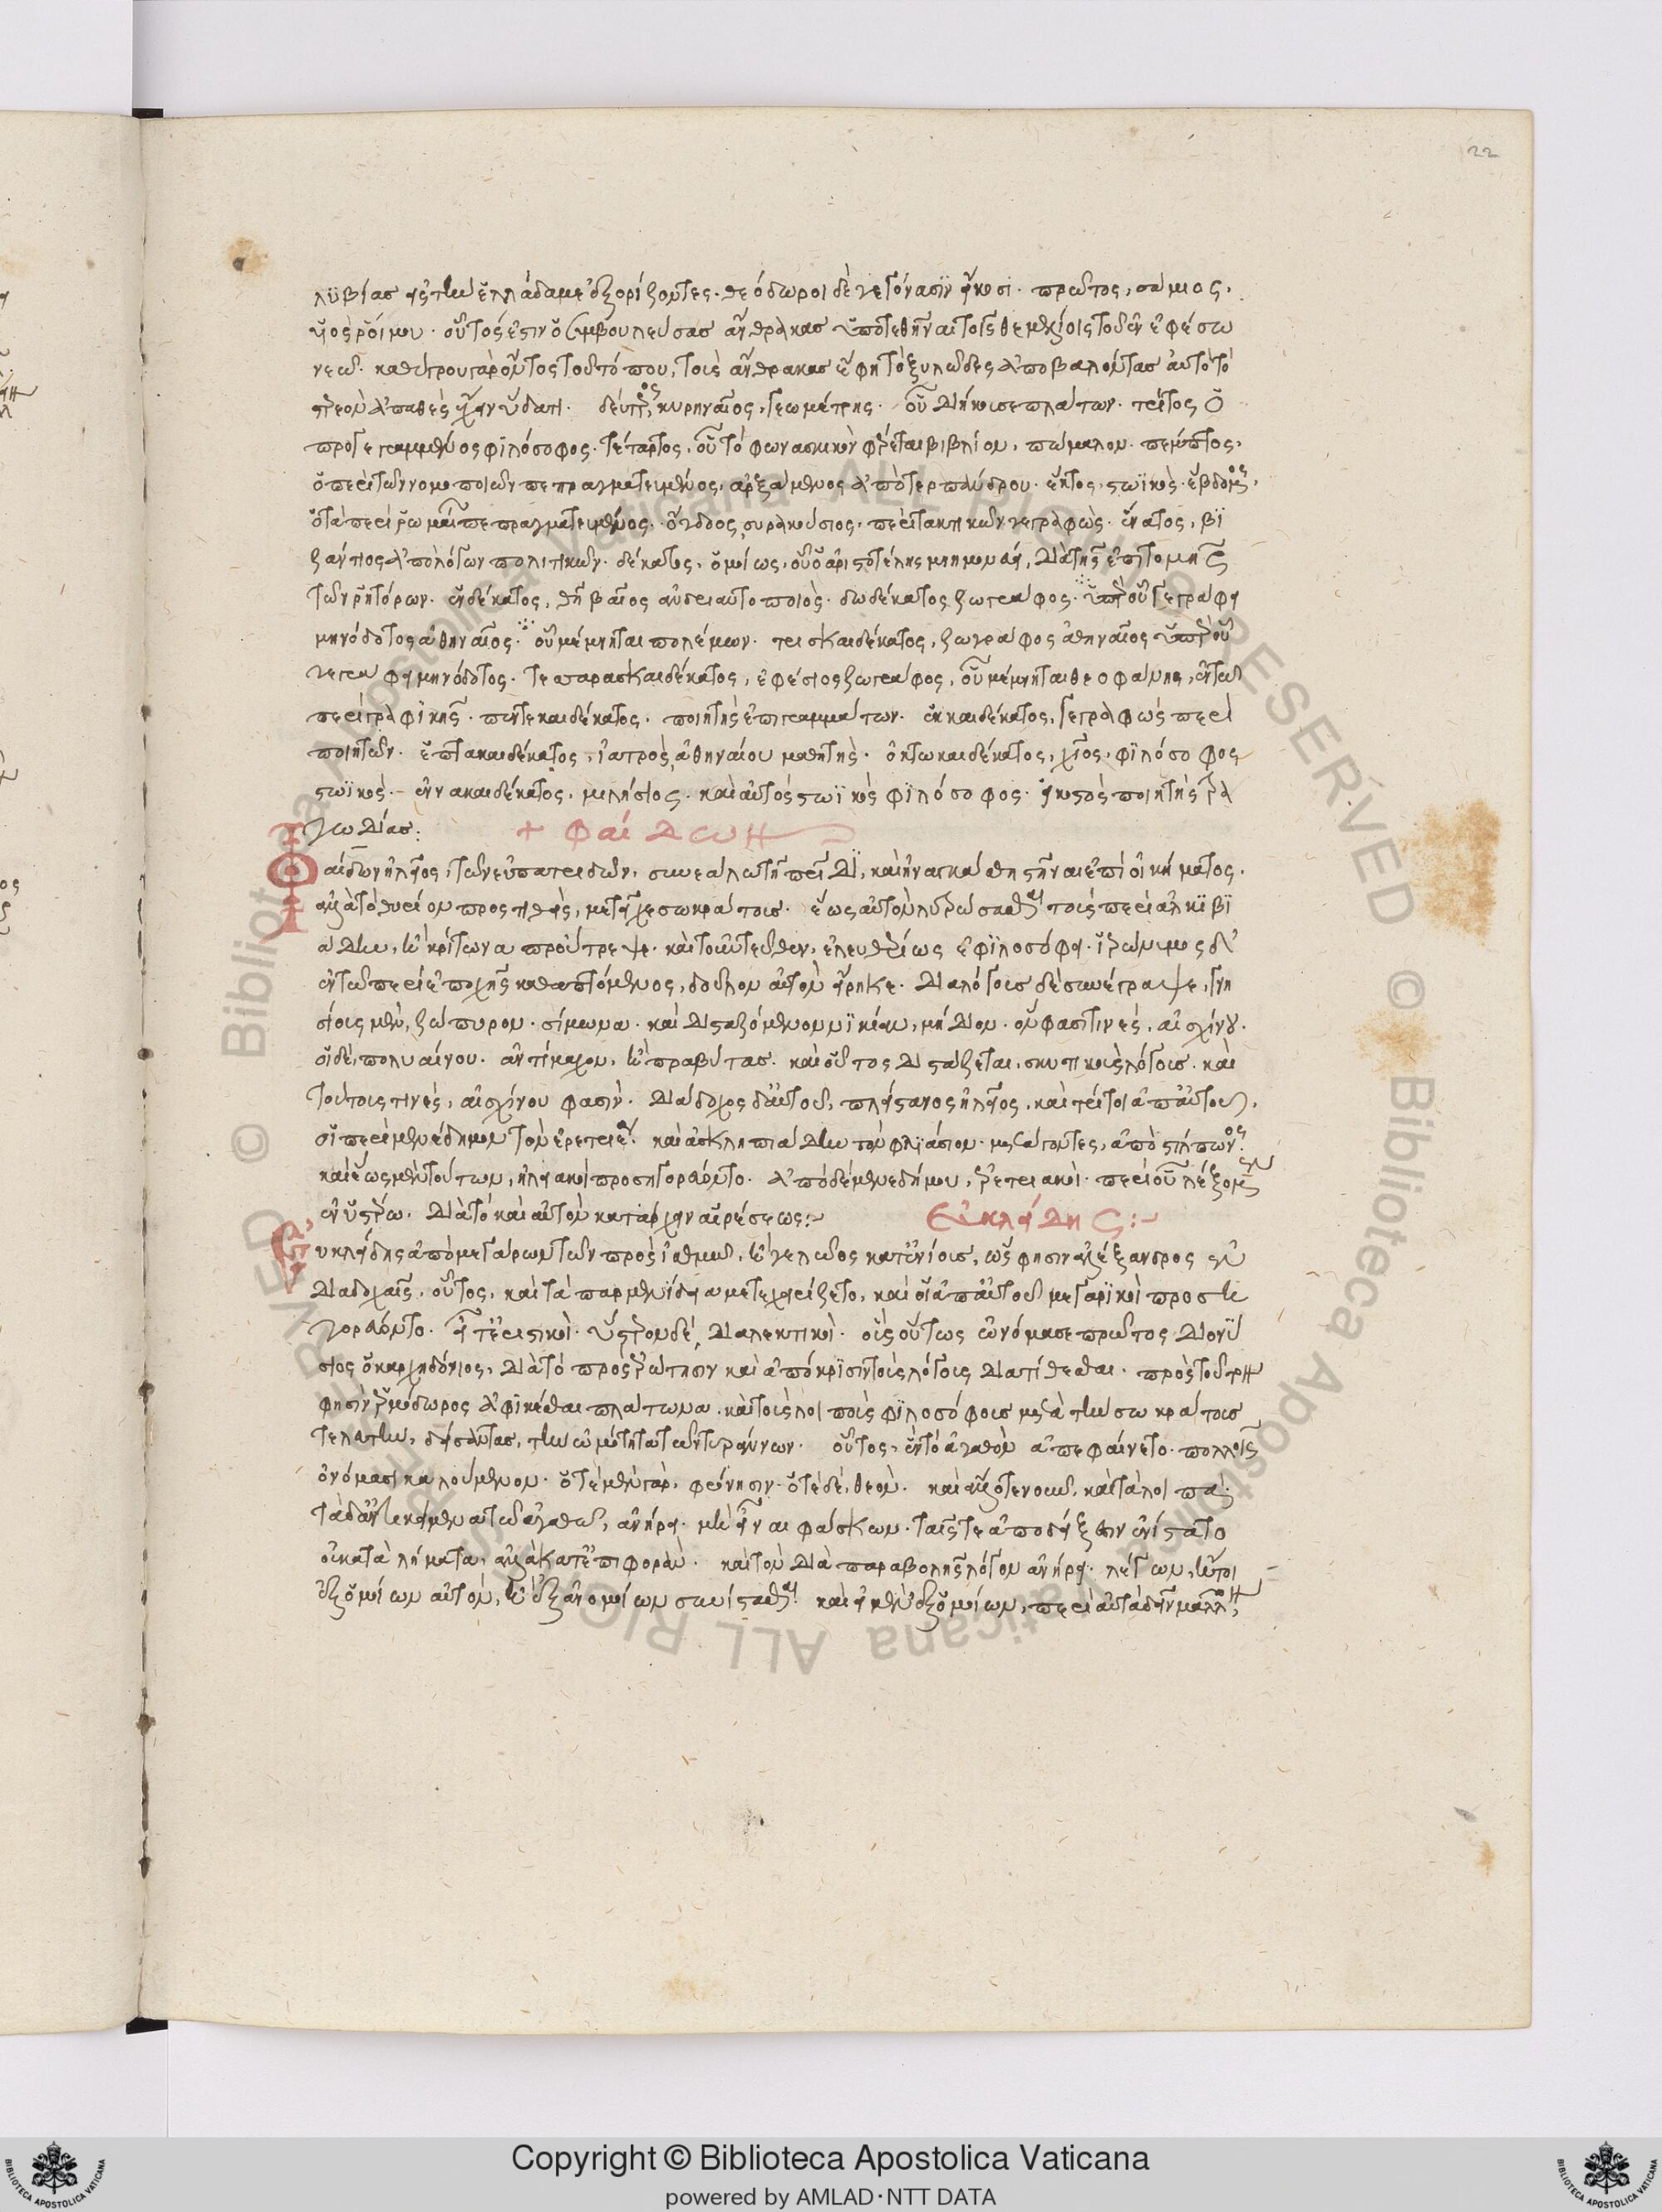 22
λϋβίας εἰς τὴν ἑλλάδα με ἐξορίζοντες. θεόδωροι δὲ γεγόνασϊν εἴκοσι. πρῶτος, σάμιος,
υἱὸς ῥοίκου. οὗτός ἐστιν ὁ συμβουλεύσας ἄνθρακας ὑποτεθῆναι τοῖς θεμελίοις τοῦ ἐν ἐφέσω
νεώ. καθύγρου γὰρ ὄντος τοῦ τόπου, τοὺς ἄνθρακας ἔφη τὸ ξυλῶδες ἀποβαλόντας αὐτὸ τὸ
στερεὸν ἀπαθὲς ἔχειν ὕδατι. δεύτερος, κυρηναῖος, γεωμέτρης. οὗ διήκουσε πλάτων. τρίτος ὁ
προγεγραμμένος φϊλόσοφος. τέταρτος, οὗ τὸ φωνασκικὸν φέρεται βιβλίον, πάγκαλον. πέμπτος,
ὁ περὶ τῶν νομοποιῶν πεπραγματευμένος, ἀρξάμενος ἀπὸ τερπάνδρου. ἕκτος, στωϊκός. ἕβδομος,
ὁ τὰ περὶ ῥωμαίους πεπραγματευμένος. ὄγδοος, συρακούσιος, περὶ τακτικῶν γεγραφώς. ἔνατος, βϊ
ζάντιος ἀπὸ λόγων πολιτικῶν. δέκατος, ὁμοίως, οὗ ὁ ἀριστοτέλης μνημονεύει, διὰ τῆς ἐπιτομῆς
τῶν ῥητόρων. ἑνδέκατος, θηβαῖος ἀνδριαντοποιός. δωδέκατος ζωγράφος. ὑπὲρ οὗ γέγραφε
μηνόδοτος ἀθηναῖος. οὗ μέμνηται πολέμων. τρισκαιδέκατος, ζωγράφος ἀθηναῖος ὑπὲρ οὗ
γέγραφε μηνόδοτος. τεσσαρασκαιδέκατος, ἐφέσιος ζωγράφος, οὗ μέμνηται θεοφάνης, ἐν τῶ
περὶ γραφϊκῆς. πεντεκαιδέκατος, ποιητὴς ἐπιγραμμάτων. ἑκκαιδέκατος, γεγραφὼς περὶ
ποιητῶν. ἑπτακαιδέκατος, ἰατρὸς, ἀθηναίου μαθητής. ὀκτωκαιδέκατος, χῖος, φϊλόσοφος
στωϊκός. ἐννακαιδέκατος, μιλήσιος, καὶ αὐτὸς στωϊκὸς φϊλόσοφος. εἰκοστὸς ποιητὴς τρα
γωδίας:
+ φαίδων
Φαίδων ἠλεῖος, τῶν εὐπατριδῶν, συνεάλω τῆ πατρίδϊ, καὶ ἠναγκάσθη στῆναι ἐπὶ οἰκήματος.
ἀλλὰ τὸ θύριον προστιθεὶς, μετεῖχε σωκράτους. ἕως αὐτὸν λυτρώσασθαι τοὺς περὶ ἀλκϊβϊ
άδην, ἢ κρίτωνα προύτρεψε. καὶ τοὐντεῦθεν, ἐλευθερίως ἐφϊλοσόφει. ἱερώνυμος δ'
ἐν τῶ περὶ ἐποχῆς καθαπτόμενος, δοῦλον αὐτὸν εἴρηκε. διαλόγους δὲ συνέγραψε, γνη
σίους μὲν, ζώπυρον. σίμωνα. καὶ δισταζόμενον νϊκίαν, μήδιον. ὅν φασί τινες, αἰσχίνου.
οἱ δὲ, πολυαίνου. ἀντίμαχον, ἢ πρεσβύτας. καὶ οὗτος διστάζεται. σκυτικοὺς λόγους. καὶ
τούτους τινὲς, αἰσχίνου φασίν. διάδοχος δ' αὐτοῦ, πλείστανος ἠλεῖος, καὶ τρίτοι ἀπ' αὐτοῦ,
οἱ περὶ μενέδημον τὸν ἐρετριέα. καὶ ἀσκληπιάδην τὸν φλϊάσιον. μετάγοντες, ἀπὸ στίλπωνος.
καὶ ἕως μὲν τούτων, ἠλειακοὶ προσηγορεύοντο. ἀπὸ δὲ μενεδήμου, ἐρετριακοί. περὶ οὗ λέξομεν
ἐν ὑστέρω. διὰ τὸ καὶ αὐτὸν κατάρχειν αἱρέσεως:~ εὐκλείδης:~
Ευκλείδης ἀπὸ μεγάρων τῶν πρὸς ἰσθμῶ, ἢ γελῶος κατ' ἐνίους, ὥς φησιν ἀλέξανδρος ἐν
διαδοχαῖς. οὗτος, καὶ τὰ παρμενίδεια μετεχειρίζετο, καὶ οἱ ἀπ' αὐτοῦ μεγαρϊκοὶ προση
γορεύοντο. εἶτ' ἐριστικοί. ὕστερον δὲ, διαλεκτικοί. οὓς οὕτως ὠνόμασε πρῶτος διονύ
σιος ὁ καρχηδόνιος, διὰ τὸ πρὸς ἐρώτησιν καὶ ἀπόκρϊσιν τοὺς λόγους διατίθεσθαι. πρὸς τοῦτον
φησὶν ἑρμόδωρος ἀφϊκέσθαι πλάτωνα. καὶ τοὺς λοιποὺς φϊλοσόφους μετὰ τὴν σωκράτους
τελευτὴν, δείσαντας, τὴν ὠμότητα τῶν τυράννων. οὗτος, ἓν τὸ ἀγαθὸν ἀπεφαίνετο. πολλοῖς
ὀνόμασι καλούμενον. ὁτὲ μὲν γὰρ, φρόνησιν. ὁτὲ δὲ, θεόν. καὶ ἄλλοτε νοῦν, καὶ τὰ λοιπά.
τὰ δ' ἀντικείμενα τῶ ἀγαθῶ, ἀνήρει. μὴ εἶναι φάσκων. ταῖς τε ἀποδείξεσιν ἐνίστατο
οὐ κατὰ λήμματα, ἀλλὰ κατ' ἐπιφοράν. καὶ τὸν διὰ παραβολῆς λόγον ἀνήρει. λέγων, ἤτοι
ἐξ ὁμοίων αὐτὸν, ἢ ἐξ ἀνομοίων συνίστασθαι. καὶ εἰ μὲν ἐξ ὁμοίων, περὶ αὐτὰ δεῖν μᾶλλον,